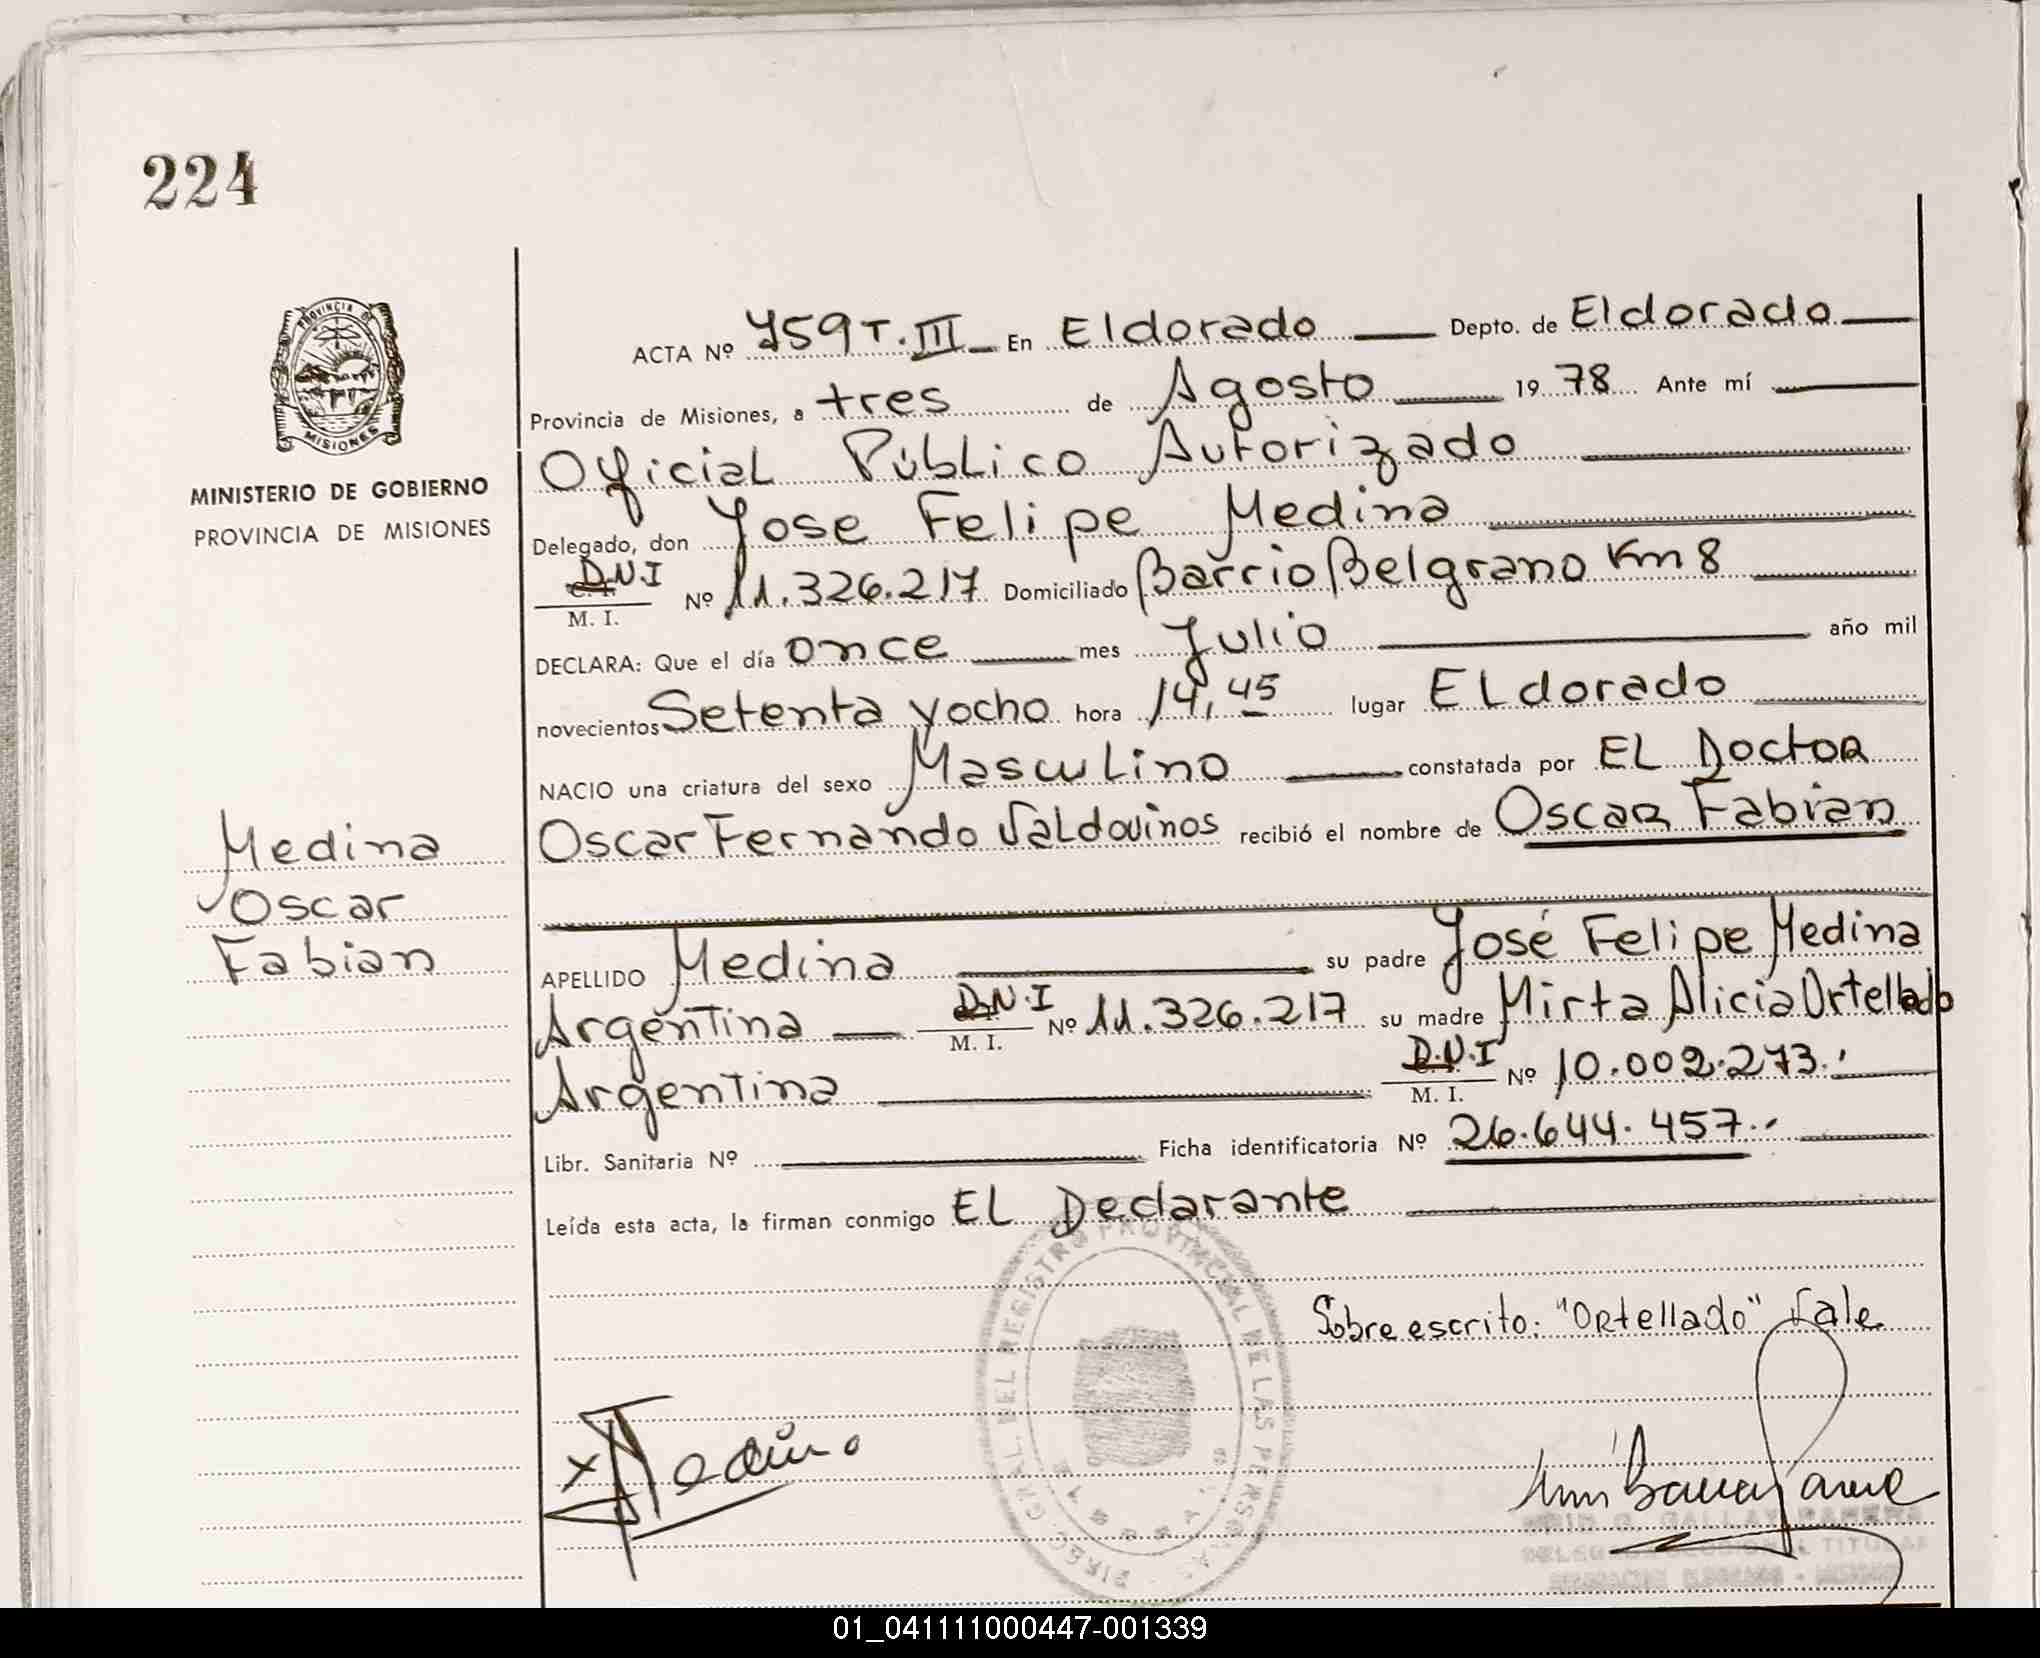 224
PROVINCIA DE
MISIONES
MINISTERIO DE GOBIERNO
PROVINCIA DE MISIONES
Medina
Oscar
Fabian
ACTA Nº 759 T. III En Eldorado Depto. de Eldorado
Provincia de Misiones, a tres de Agosto 1978 Ante mí
Oficial Público Autorizado
Delegado, don Jose Felipe Medina
D.N.I
M. I. Nº 11.326.217 Domiciliado Barrio Belgrano Km 8
DECLARA: Que el día once mes Julio año mil
novecientos Setenta y ocho hora 14,45 lugar ELdorado
NACIO una criatura del sexo Masculino constatada por EL Doctor
Oscar Fernando Valdovinos recibió el nombre de Oscar Fabian
APELLIDO Medina su padre José Felipe Medina
Argentina D.N.I M. I. Nº 11.326.217 su madre Mirta Alicia Ortellado
Argentina D.N.I M. I. Nº 10.002.273.
Libr. Sanitaria Nº Ficha identificatoria Nº 26.644.457.
Leída esta acta, la firman conmigo EL Declarante
DIREC. GRAL. DEL REGISTRO PROVINCIAL DE LAS PERSONAS
MISIONES
Sobre escrito: "Ortellado" Vale
x Medina
01_041111000447-001339